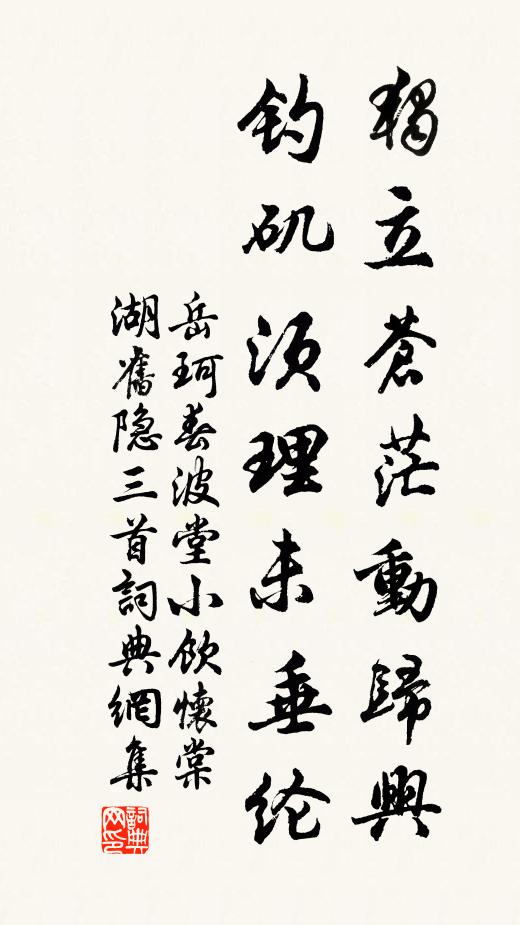 獨立蒼茫動歸興
钓矶须理未垂纶
岳珂春波堂小飲懷棠
湖舊隐三首詞典網集
詞典網印